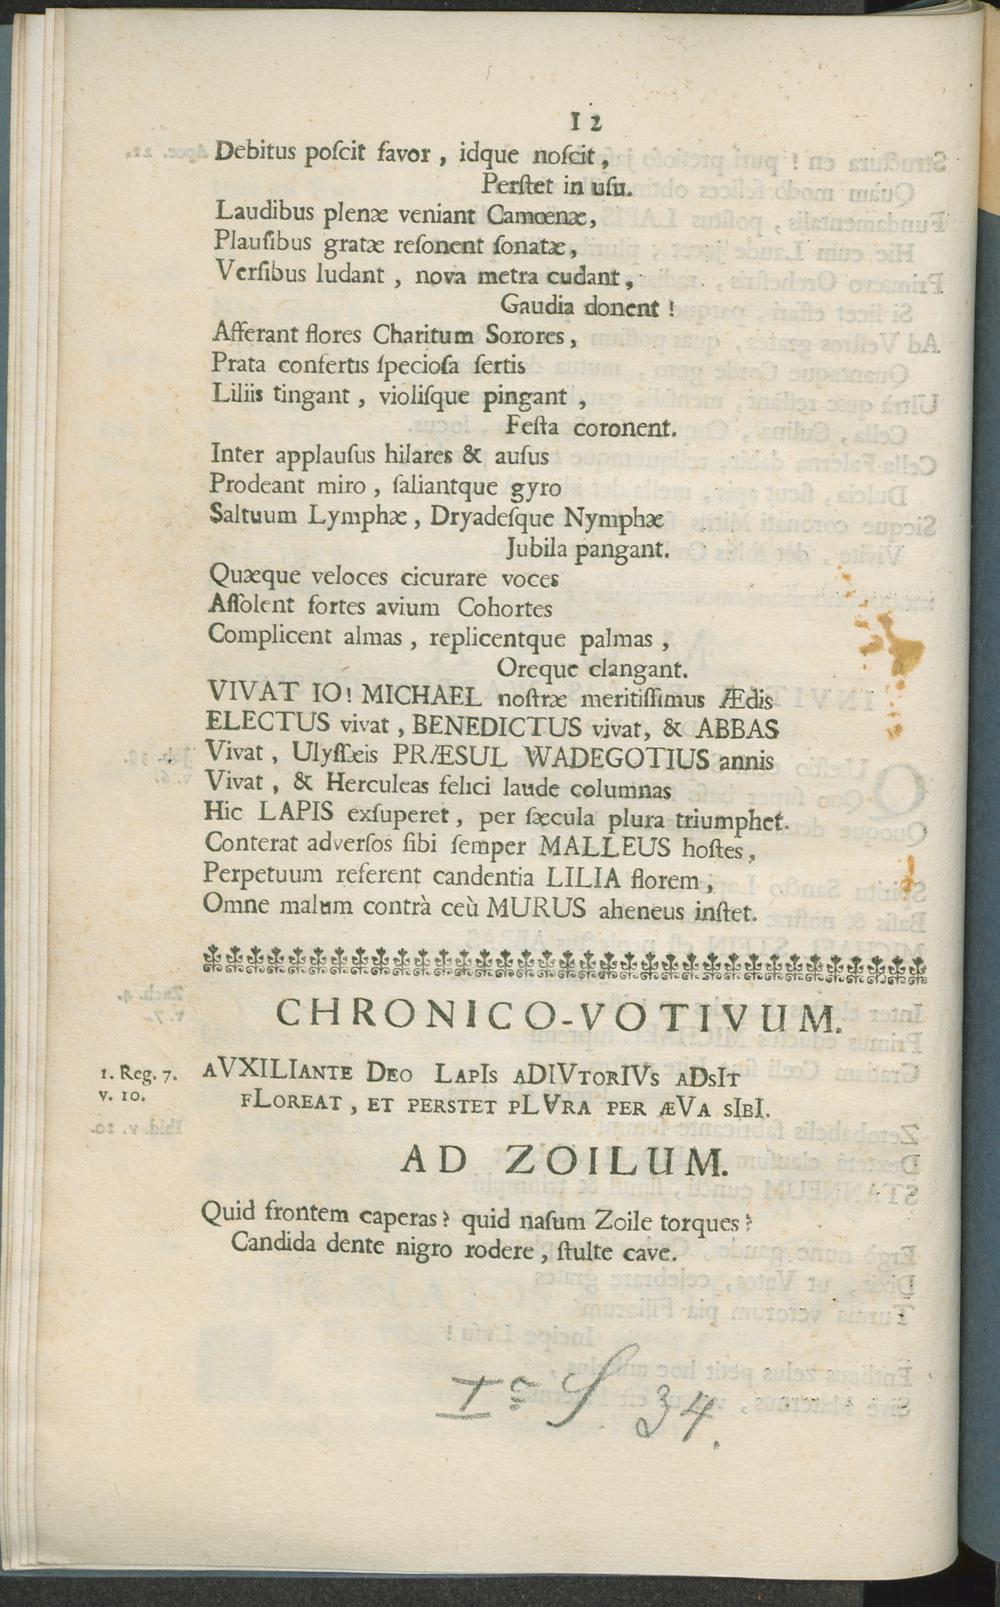 12
Debitus poſcit favor, idque noſcit,
Perſtet in uſu.
Laudibus plenæ veniant Camœnæ,
Plauſibus gratæ reſonent ſonatæ,
Verſibus ludant, nova metra cudant,
Gaudia donent!
Afferant flores Charitum Sorores,
Prata confertis ſpecioſa ſertis
Liliis tingant, violiſque pingant,
Feſta coronent.
Inter applauſus hilares & auſus
Prodeant miro, ſaliantque gyro
Saltuum Lymphæ, Dryadeſque Nymphæ
Jubila pangant.
Quæque veloces cicurare voces
Aſſolent fortes avium Cohortes
Complicent almas, replicentque palmas,
Oreque clangant.
VIVAT IO! MICHAEL noſtræ meritiſſimus Ædis
ELECTUS vivat, BENEDICTUS vivat, & ABBAS
Vivat, Ulyſſæis PRÆSUL WADEGOTIUS annis
Vivat, & Herculeas felici laude columnas
Hic LAPIS exſuperet, per ſæcula plura triumphet.
Conterat adverſos ſibi ſemper MALLEUS hoſtes,
Perpetuum referent candentia LILIA florem,
Omne malum contrà ceù MURUS aheneus inſtet.
CHRONICO-VOTIVUM.
1. Reg. 7. v. 10.
aVXILIante Deo LapIs aDIVtorIVs aDsIt
fLoreat, et perstet pLVra per æVa sIbI.
AD ZOILUM.
Quid frontem caperas? quid naſum Zoile torques?
Candida dente nigro rodere, ſtulte cave.
34.